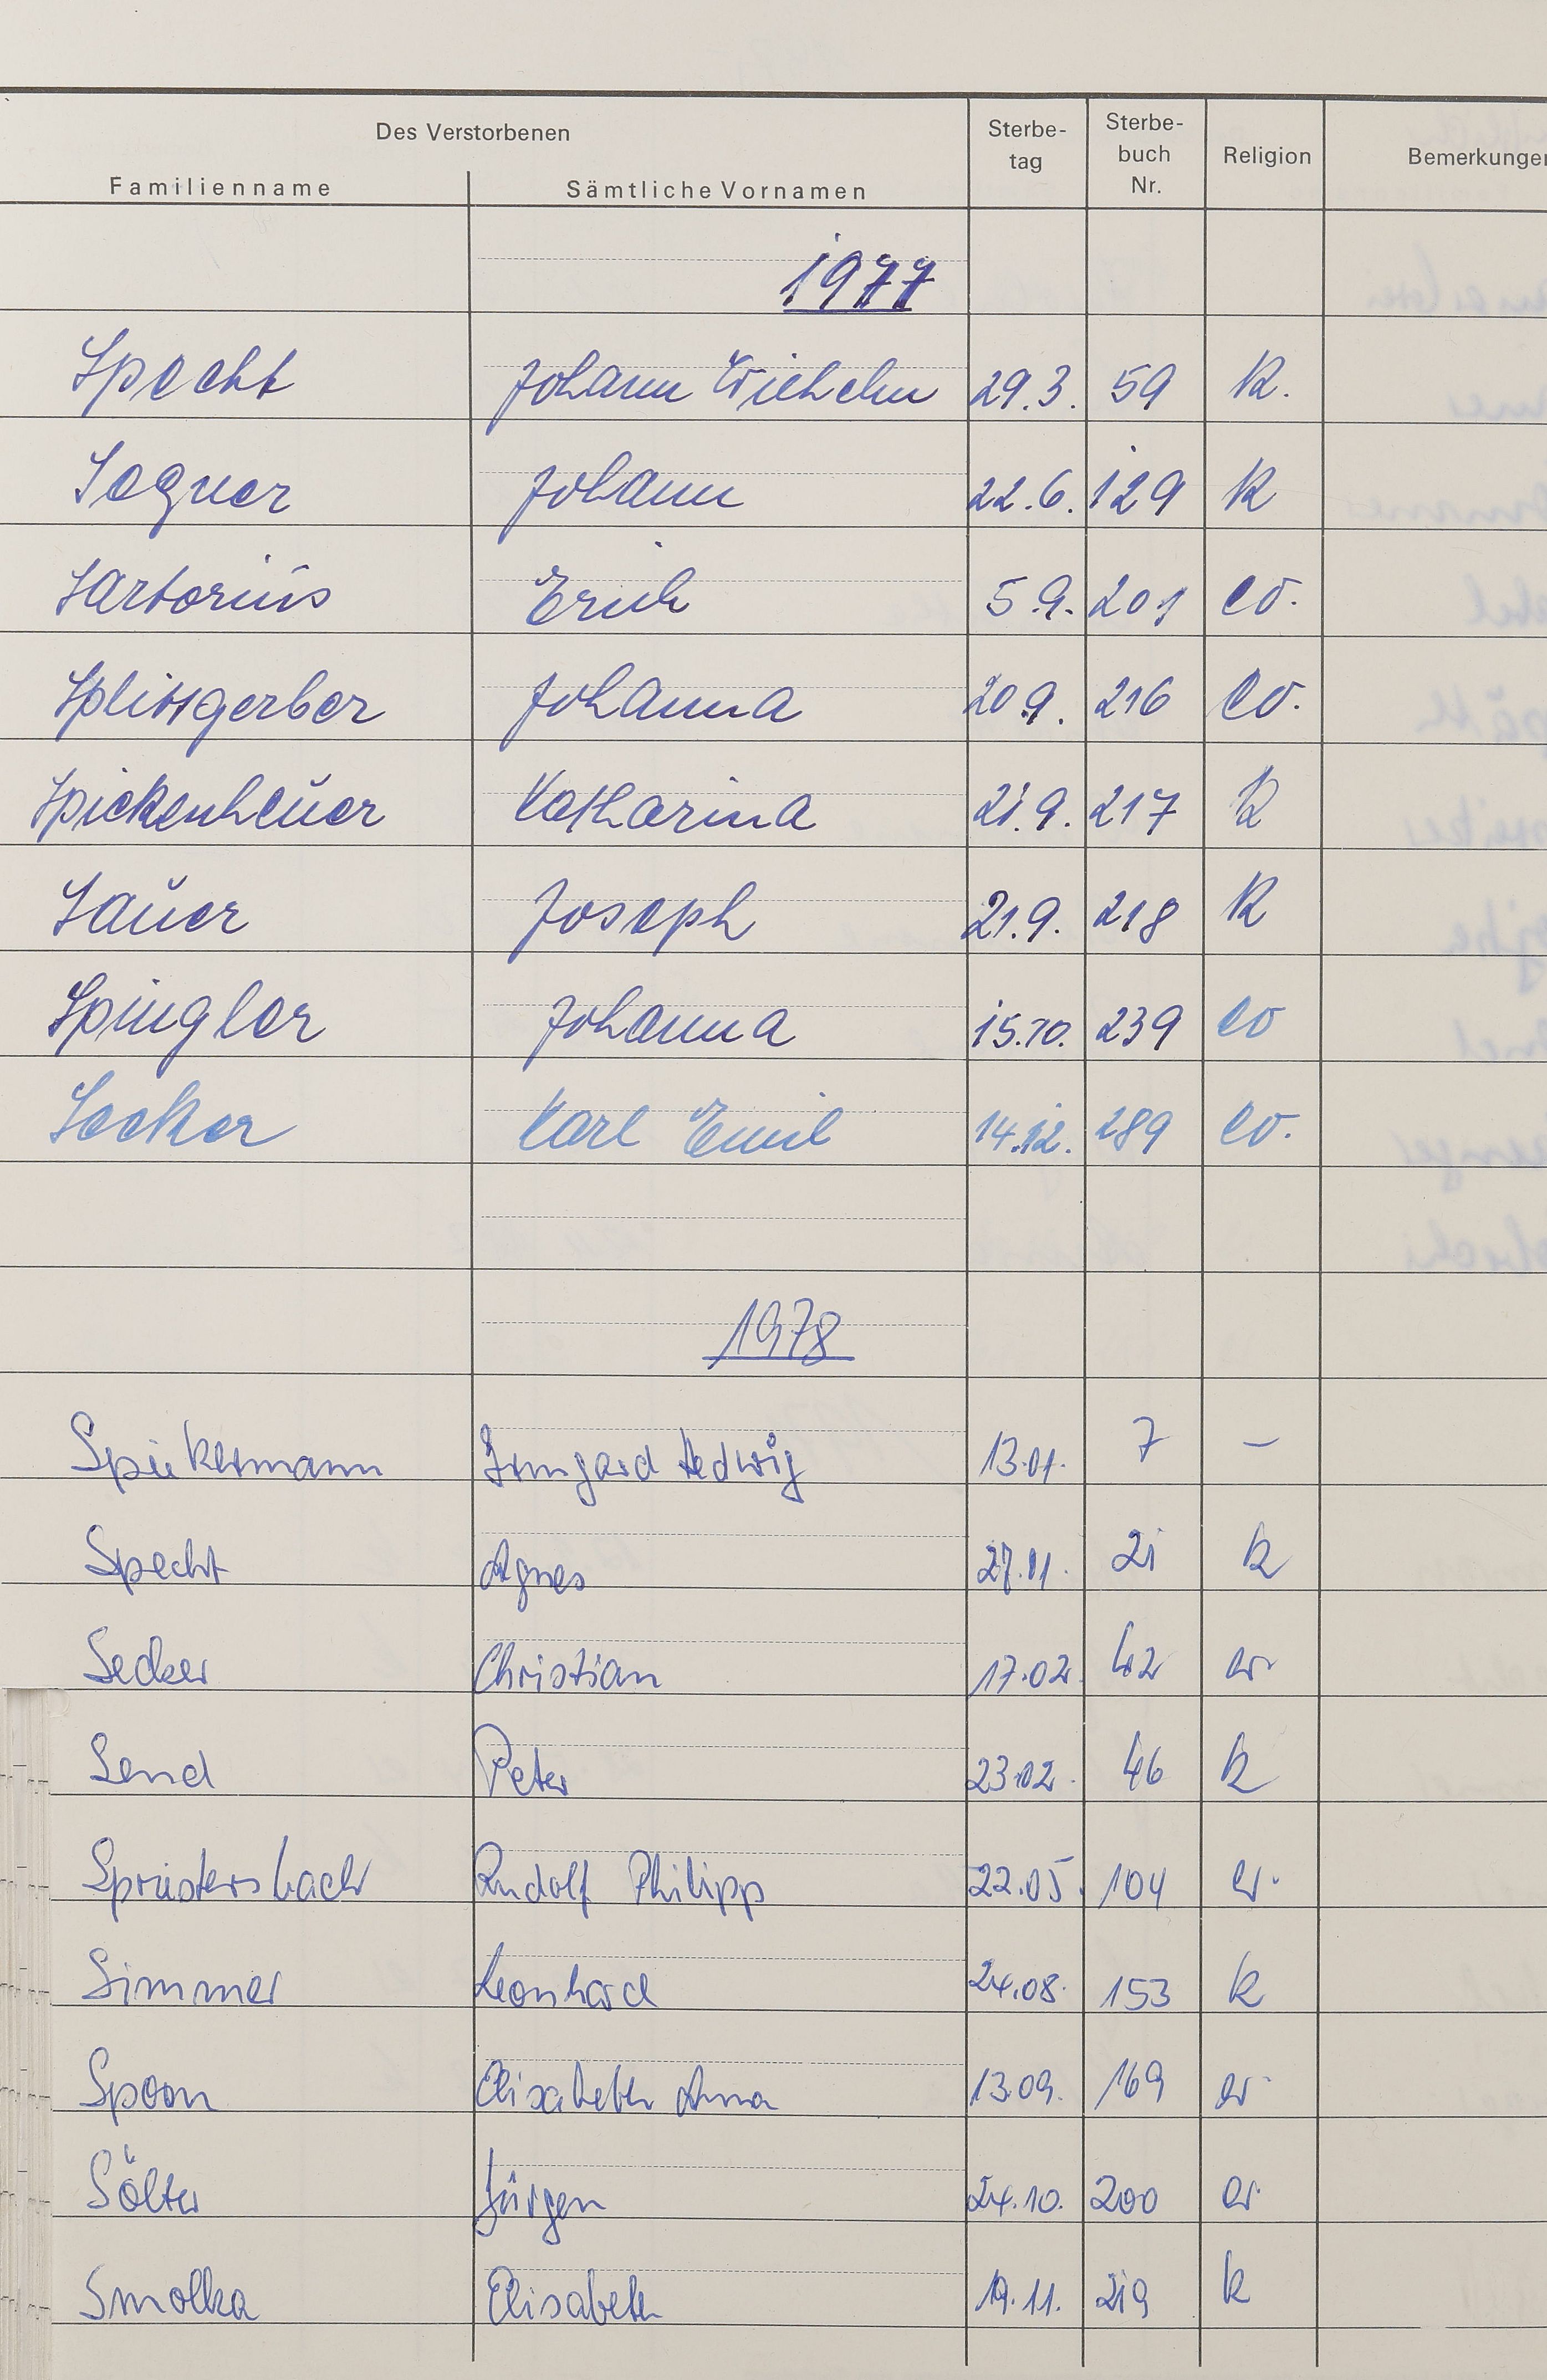 Des Verstorbenen
Familienname Sämtliche Vornamen Sterbe-tag Sterbe-buch Nr. Religion Bemerkungen
1977
Specht Johann Wilhelm 29.3. 59 k.
Segner Johann 22.6. 129 k
Sartorius Erich 5.9. 201 ev.
Splittgerber Johanna 20.9. 216 ev.
Spickenheuer Katharina 21.9. 217 k
Sauer Joseph 21.9. 218 k
Spingler Johanna 15.10. 239 ev
Secker Karl Emil 14.12. 289 ev.
1978
Spiekermann Irmgard Hedwig 13.01. 7 –
Specht Agnes 27.01. 21 k
Secker Christian 17.02. 42 ev.
Send Peter 23.02. 46 k
Spriestersbach Rudolf Philipp 22.05. 104 ev.
Simmer Leonhard 24.08. 153 k
Spoon Elisabeth Anna 13.09. 169 ev.
Sölter Jürgen 24.10. 200 ev.
Smolka Elisabeth 19.11. 219 k